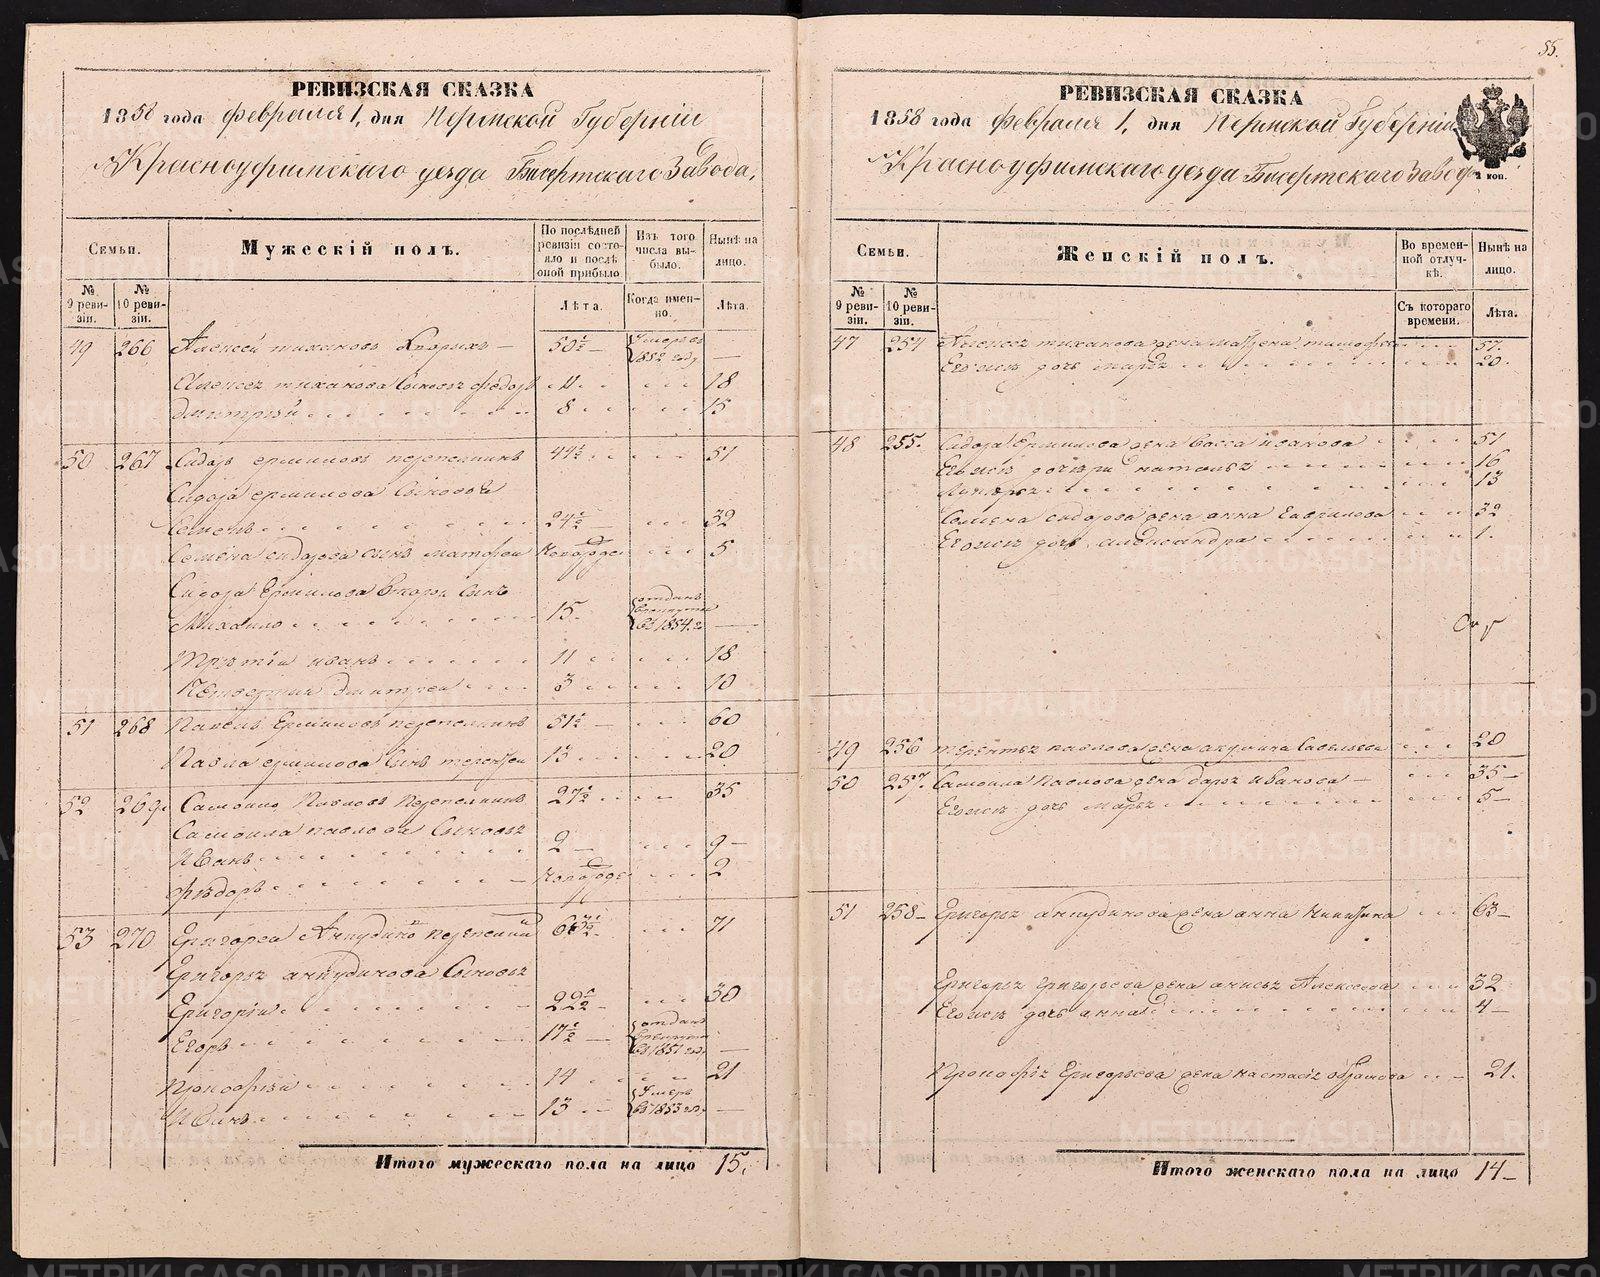 55.
РЕВИЗСКАЯ СКАЗКА
1858 года февраля 1, дня Пермской Губерніи
Красноуфимскаго уезда Бисертскаго Завода,
Семьи.
Мужескій полъ.
По послѣдней ревизіи состояло и послѣ оной прибыло
Изъ того числа выбыло.
Нынѣ на лицо.
№ 9 ревизіи.
№ 10 ревизіи.
Лѣта.
Когда именно.
Лѣта.
49 266 Алексей тихановъ 50½ Умеръ в 1852 году —
Алексея тиханова Сыновья федоръ 11 18
дмитрей 8 15
50 267 Сидоръ ермиловъ перепелкинъ 44½ 51
Сидора ермилова Сыновья
Семенъ 24½ 32
Семена сидорова сынъ матфей новорожде 5
Сидора Ермилова вторы сынъ
Михайло 15 отданъ в рекруты въ 1854 г —
третій иванъ 11 18
четвертый дмитрей 3 10
51 268 Павелъ Ермиловъ перепелкинъ 51½ 60
Павла ермилова сынъ терентей 13 20
52 269 Самойло Павловъ Перепелкинъ 27½ 35
Самойла павлова Сыновья
Иванъ 2 9
Фёдоръ новорожде 2
53 270 Григорей Анкудинов перепелкин 63½ 71
Григорья анкудинова Сыновья
Григорій 22½ 30
Егоръ 17½ отданъ в рекруты въ 1851 году —
Прокофей 14 21
Иванъ 13 Умеръ въ 1853 году —
Итого мужескаго пола на лицо 15.
РЕВИЗСКАЯ СКАЗКА
1858 года февраля 1, дня Пермской Губерніи
Красноуфимскаго уезда Бисертскаго Завод
2 коп.
Семьи.
Женскій полъ.
Во временной отлучкѣ.
Нынѣ на лицо.
№ 9 ревизіи.
№ 10 ревизіи.
Съ котораго времени.
Лѣта.
47 254 Алексея тиханова жена матрена тимофее 57.
Его же дочь марья 20
48 255. Сидора Ермилова жена Васса иванова 51
Его же дочери наталья 16
Лукерья 13
Семена сидорова жена анна Гаврилова 32
Его же дочь александра 1.
49 256 терентья павлова жена акулина Савельева 20
50 257. Самойла Павлова жена дарья иванова 35
Его же дочь марья 5
51 258 Григорья анкудинова жена анна Никитина 63
Григорья григорьева жена анисья Алексеева 32
Его же дочь анна 4
Прокофья Григорьева жена настасья абрамова 21.
Итого женскаго пола на лицо 14
METRIKI.GASO-URAL.RU